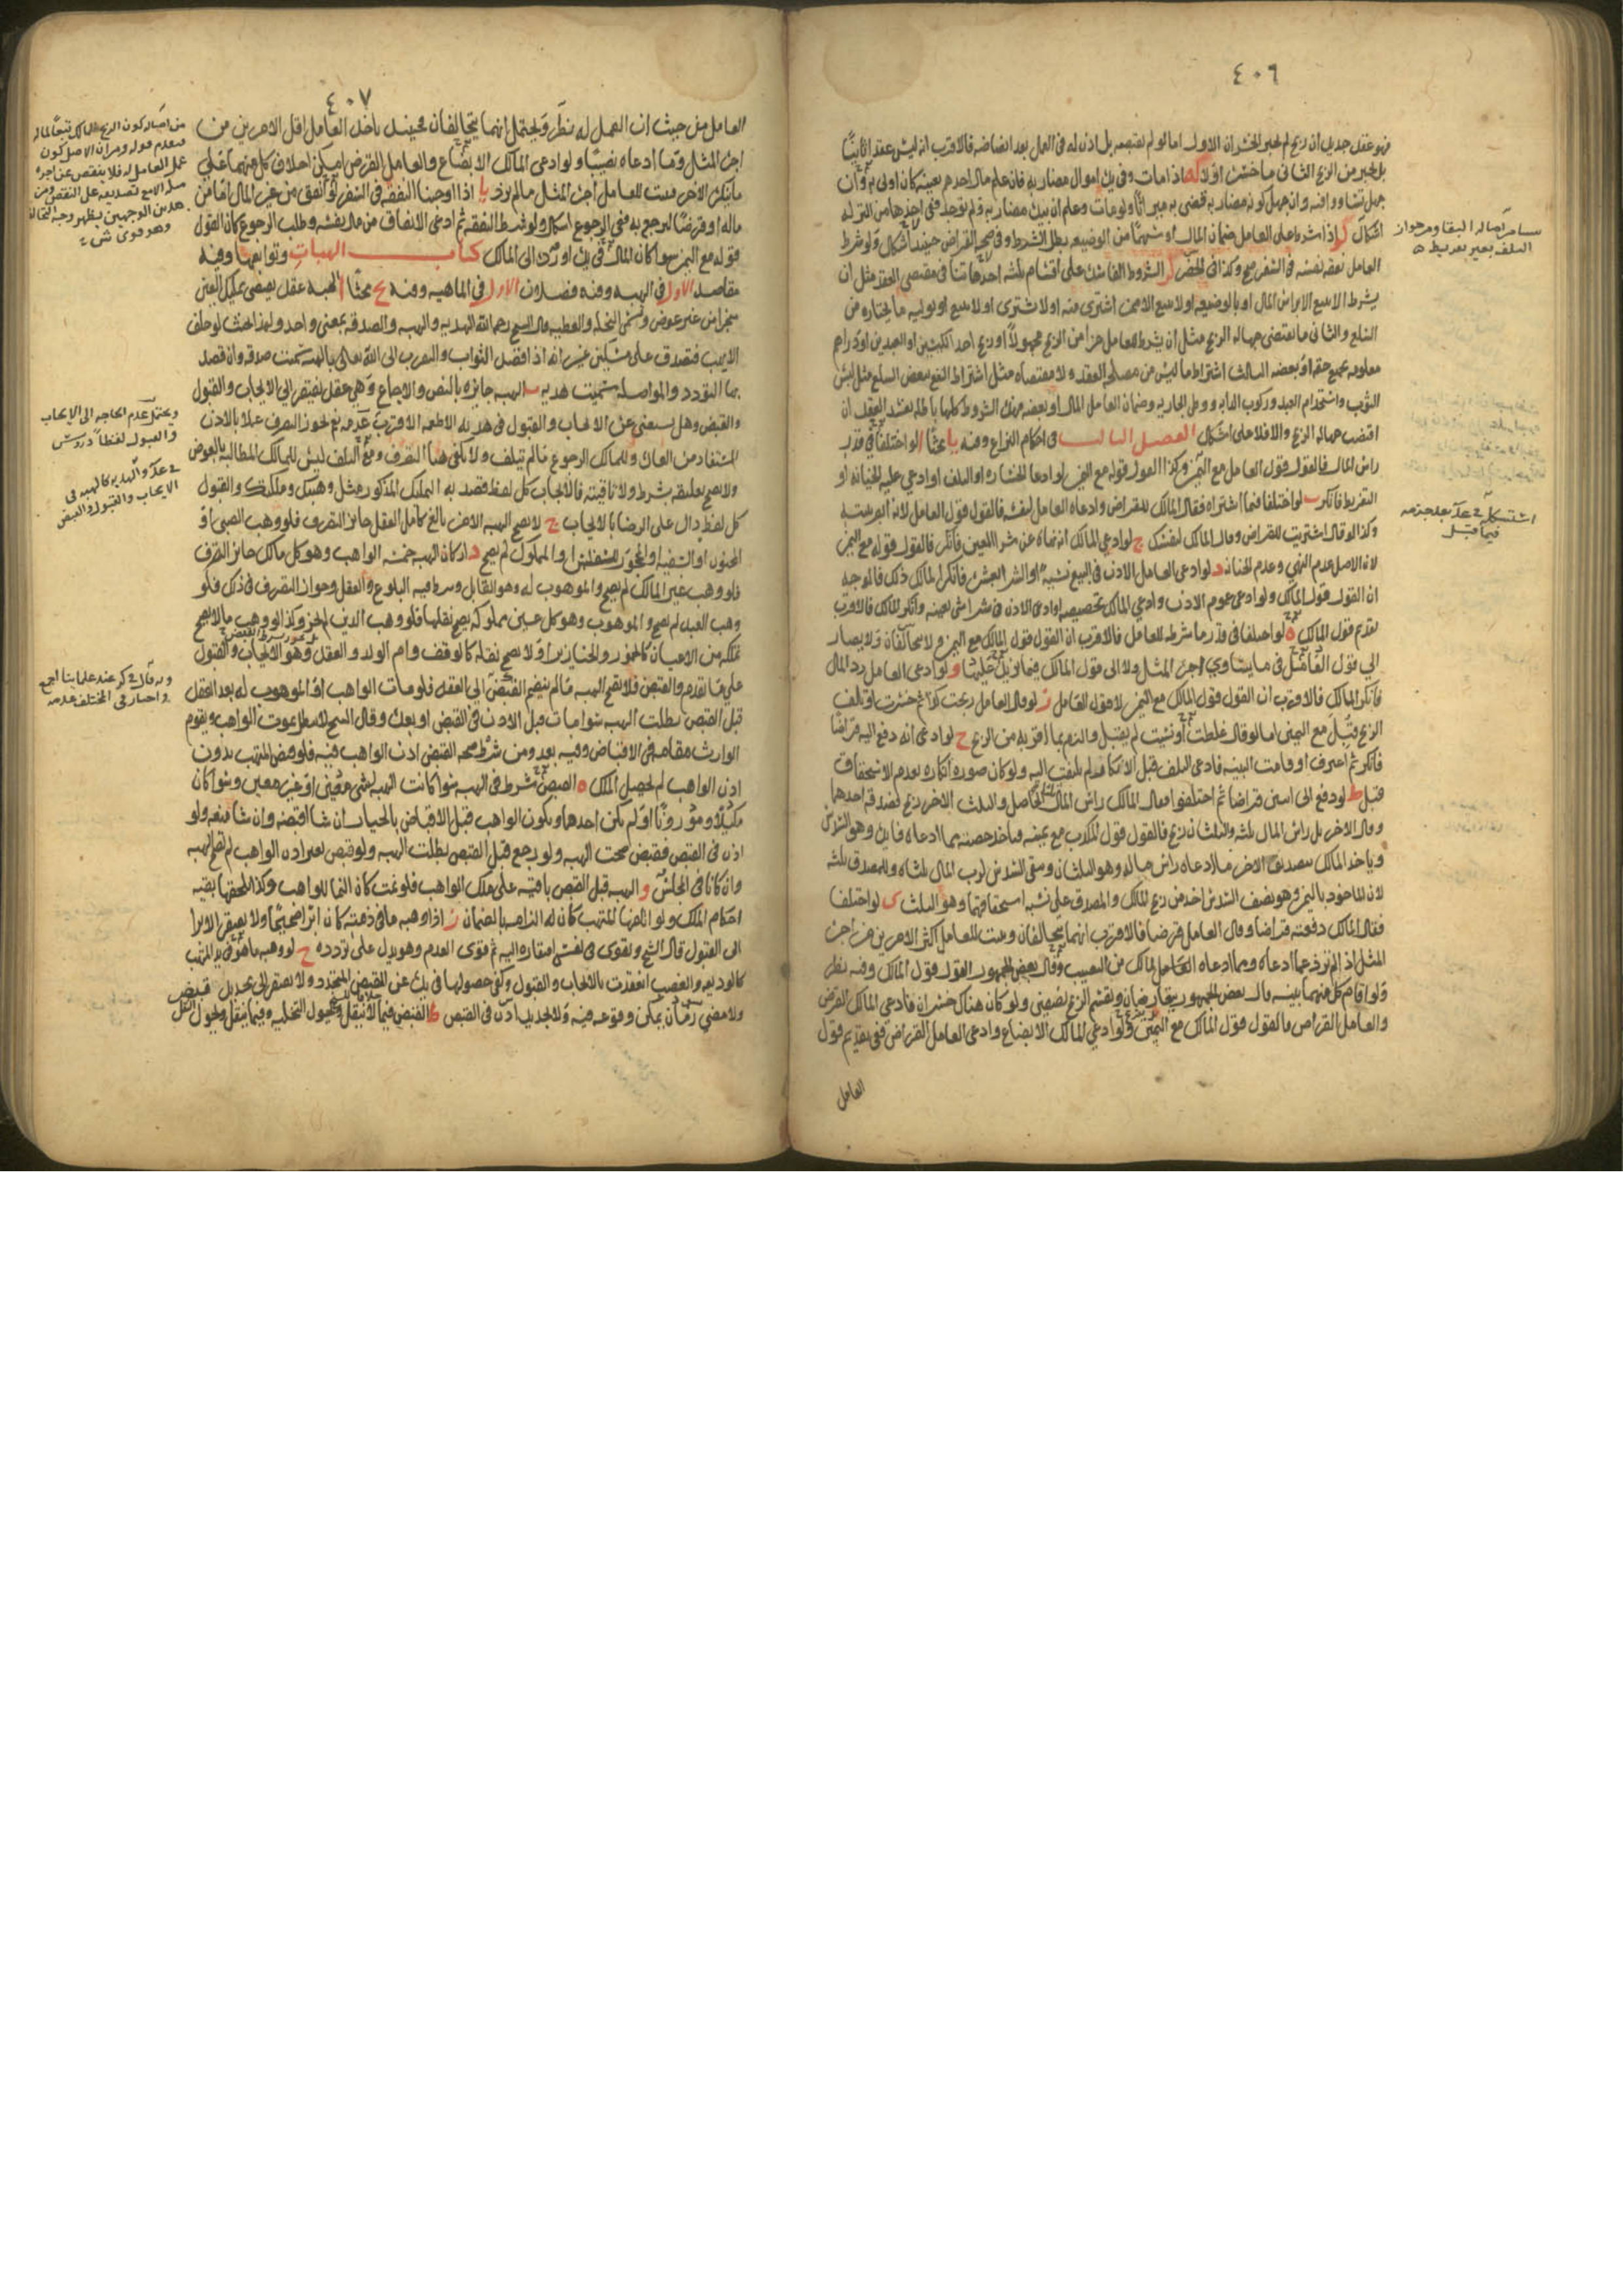 ٤٠٦
فهو عقد جديد ان ربح لم يجبر الخسران الاول اما لو لم يقتسمه بل اذن له فى العمل بعد انضاضه فالاقرب انه ليس عقدا ثانيا
بل يجبر من الربح الثانى ما خسر اولا كه اذا مات وفى يده اموال مضاربه فان علم مال احدهم بعينه كان اولى به وان
جهل تساووا فيه وان جهل كونه مضاربه قضى به ميراثا ولو مات وعلم ان بيده مضاربه ولم يوجد ففى اخذها من التركه
اشكال كو اذا شرط على العامل ضمان المال او سهما من الوضيعه بطل الشرط وفى صحه القراض حينئذ اشكال ولو شرط
العامل نفقه نفسه فى السفر صح وكذا فى الحضر كز الشروط الفاسده على اقسام ثلثه احدها تنافى مقتضى العقد مثل ان
يشرط الا يبيع الا براس المال او بالوضيعه او لا يبيع الا ممن اشترى منه او لا يشترى او لا يبيع او يوليه ما يختاره من
السلع والثانى ما يقتضى جهاله الربح مثل ان يشرط للعامل جزءا من الربح مجهولا او ربح احد الكيسين او العبدين او دراهم
معلومه بجميع حقه او بعضه الثالث اشتراط ما ليس من مصلحه العقد ولا مقتضاه مثل اشتراط النفع ببعض السلع مثل لبس
الثوب واستخدام العبد وركوب الدابه ووطى الجاريه وضمان العامل المال او بعضه فهذه الشروط كلها باطله يفسد العقد ان
اقتضت جهاله الربح والا فلا على اشكال الفصل الثالث فى احكام النزاع وفيه يا بحثا ا لو اختلفا فى قدر
راس المال فالقول قول العامل مع اليمين وكذا القول قوله مع اليمين لو ادعا الخساره او التلف او ادعى عليه الخيانه او
التفريط فانكر ب لو اختلفا فيما اشتراه فقال المالك للقراض وادعاه العامل لنفسه فالقول قول العامل لانه ابصر بنيته
وكذا لو قال اشتريت للقراض وقال المالك لنفسك ج لو ادعى المالك انه نهاه عن شرا العين فانكر فالقول قوله مع اليمين
لان الاصل عدم النهى وعدم الخيانه د لو ادعى العامل الاذن فى البيع نسيه او الشرا بعشره فانكر المالك ذلك فالوجه
ان القول قول المالك ولو ادعى عموم الاذن وادعى المالك تخصيصه او ادعى الاذن فى شرا شى بعينه وانكر المالك فالاقرب
تقديم قول المالك ه لو اختلفا فى قدر ما شرطه للعامل فالاقرب ان القول قول المالك مع اليمين ولا يتحالفان ولا يصار
الى قول العامل فيما يساوى اجره المثل ولا الى قول المالك فيما يزيد عليها و لو ادعى العامل رد المال
فانكر المالك فالاقرب ان القول قول المالك مع اليمين لا قول العامل ز لو قال العامل ربحت كذا ثم خسرت او تلف
الربح قبل مع اليمين اما لو قال غلطت او نسيت لم يقبل والزم بما اقر به من الربح ح لو ادعى انه دفع اليه قراضا
فانكر ثم اعترف او قامت البينه فادعى التلف قبل الانكار لم يلتفت اليه ولو كان صوره انكاره بعدم الاستحقاق
قبل ط لو دفع الى اثنين قراضا ثم اختلفوا فقال المالك راس المال الحاصل والثلث الاخر ربح فصدقه احدهما
وقال الاخر بل راس المال ثلثه والثلثان ربح فالقول قول المكذب مع يمينه فياخذ حصته مما ادعاه فايده وهو السدس
وياخذ المالك بتصديق الاخر ما ادعاه راس ماله وهو الثلثان ويبقى السدس لرب المال ثلثاه وللمصدق ثلثه
لان الماخوذ باليمين وهو نصف السدس اخذ من ربح المالك والمصدق على نسبه استحقاقهما وهو الثلث ى لو اختلفا
فقال المالك دفعته قراضا وقال العامل قرضا فالاقرب انهما يتحالفان ويثبت للعامل اكثر الامرين من اجره
المثل اذا لم تزد عما ادعاه ومما ادعاه الحامل لمالك من النصيب وقال بعض الجمهور القول قول المالك وفيه نظر
ولو اقام كل منهما بينه قال بعض الجمهور يتعارضان ويقسم الربح نصفين ولو كان هناك خسران فادعى المالك القرض
والعامل القراض فالقول قول المالك مع اليمين ولو ادعى المالك الابضاع وادعى العامل القراض ففى تقديم قول
العامل
من اصاله البقا ومن جواز
التلف بغير تفريط ه
استشكل فى عد بعد جزمه
فيما قبل
٤٠٧
العامل من حيث ان العمل له نظر ويحتمل انهما يتحالفان فحينئذ ياخذ العامل اقل الامرين من
اجره المثل وما ادعاه نصيبا ولو ادعى المالك الابضاع والعامل القرض امكن احلاف كل منهما على
ما ينكره الاخر فيثبت للعامل اجره المثل ما لم يزد يا اذا اوجبنا النفقه فى السفر لو انفق من عين المال اما من
ماله او قرضا ليرجع به ففى الرجوع اشكال ولو شرط النفقه ثم ادعى الانفاق من مال نفسه وطلب الرجوع كان القول
قوله مع اليمين سوا كان المال فى يده او رده الى المالك كتاب الهبات وتوابعها وفيه
مقاصد الاول فى الهبه وفيه فصلان الاول فى الماهيه وفيه بحثا ا الهبه عقد يقتضى تمليك العين
منجزا من غير عوض وتسمى النحله والعطيه قال الشيخ رحمه الله الهديه والهبه والصدقه بمعنى واحد ولهذا يحنث لو حلف
الا يهب فتصدق على مسكين غير انه اذا قصد الثواب والتقرب الى الله تعالى بالهبه سميت صدقه وان قصد
بها التودد والمواصله سميت هديه ب الهبه جايزه بالنص والاجماع وهى عقد يفتقر الى الايجاب والقبول
والقبض وهل يستغنى عن الايجاب والقبول فى هديه الاطعمه الاقرب عدمه نعم يجوز التصرف عملا بالاذن
المستفاد من العاده وللمالك الرجوع ما لم يتلف ولا يكفى هذا التصرف ومع التلف ليس للمالك المطالبه بالعوض
ولا يصح تعليقه بشرط ولا تاقيته فالايجاب كل لفظ قصد به التمليك المذكور مثل وهبتك وملكتك والقبول
كل لفظ دال على الرضا بالايجاب ج لا يصح الهبه الا من بالغ كامل العقل جايز التصرف فلو وهب الصبى او
المجنون او السفيه او المحجور للفلس او المملوك لم يصح د اركان الهبه خمسه الواهب وهو كل مالك جايز التصرف
فلو وهب غير المالك لم يصح والموهوب له وهو القابل وشرط فيه البلوغ والعقل وجواز التصرف فى ذلك فلو
وهب العبد لم يصح والموهوب وهو كل عين مملوكه يصح نقلها فلو وهب الدين لم يجز وكذا لو وهب ما لا يصح
تملكه من الاعيان كالخمور والخنازير او لا يصح نقله كالوقف وام الولد والعقد وهو الايجاب والقبول
على ما تقدم والقبض فلا يصح الهبه ما لم ينضم القبض الى العقد فلو مات الواهب او الموهوب له بعد العقد
قبل القبض بطلت الهبه سوا مات قبل الاذن فى القبض او بعده وقال الشيخ لا يبطل بموت الواهب ويقوم
الوارث مقامه فى الاقباض وفيه بعد ومن شرط صحه القبض اذن الواهب فيه فلو قبض المتهب بدون
اذن الواهب لم يحصل الملك ه القبض شرط فى الهبه سوا كانت الهبه لشى معين او غير معين وسوا كان
مكيلا وموزونا او لم يكن احدهما ويكون الواهب قبل الاقباض بالخيار ان شا اقبضه وان شا منعه ولو
اذن فى القبض فقبض صحت الهبه ولو رجع قبل القبض بطلت الهبه ولو قبض بغير اذن الواهب لم تصح الهبه
وان كانا فى المجلس و الهبه قبل القبض باقيه على ملك الواهب فلو نمت كان النما للواهب وكذا يلحقها بقيه
احكام الملك ولو اتلفها المتهب كان له الزامه بالضمان ز اذا وهبه ما فى ذمته كان ابرا صحيحا ولا يفتقر الابرا
الى القبول قال الشيخ ويقوى فى نفسى افتقاره اليه ثم قوى العدم وهو يدل على تردده ح لو وهبه ما هو فى يد المتهب
كالوديعه والغصب انعقدت بالايجاب والقبول وكفى حصولها فى يده عن القبض المتجدد ولا يفتقر الى تجديد قبض
ولا مضى زمان يمكن وقوعه فيه ولا تجديد اذن فى القبض ط القبض فيما لا ينقل ويحول التخليه وفيما ينقل ويحول النقل
من اصاله كون الربح للمالك تبعا لماله
فيقدم قوله ومن ان الاصل كون
عمل العامل له فلا ينقص عن اجره
هذين الوجهين يظهر وجه التحالف
وهو قوى ش
ويحتمل عدم الحاجه الى الايجاب
والقبول لفظا دروس
فى عد والهديه كالهبه فى
الايجاب والقبول والقبض
وبه قال فى كره عند علمائنا اجمع
واختار فى المختلف عدمه